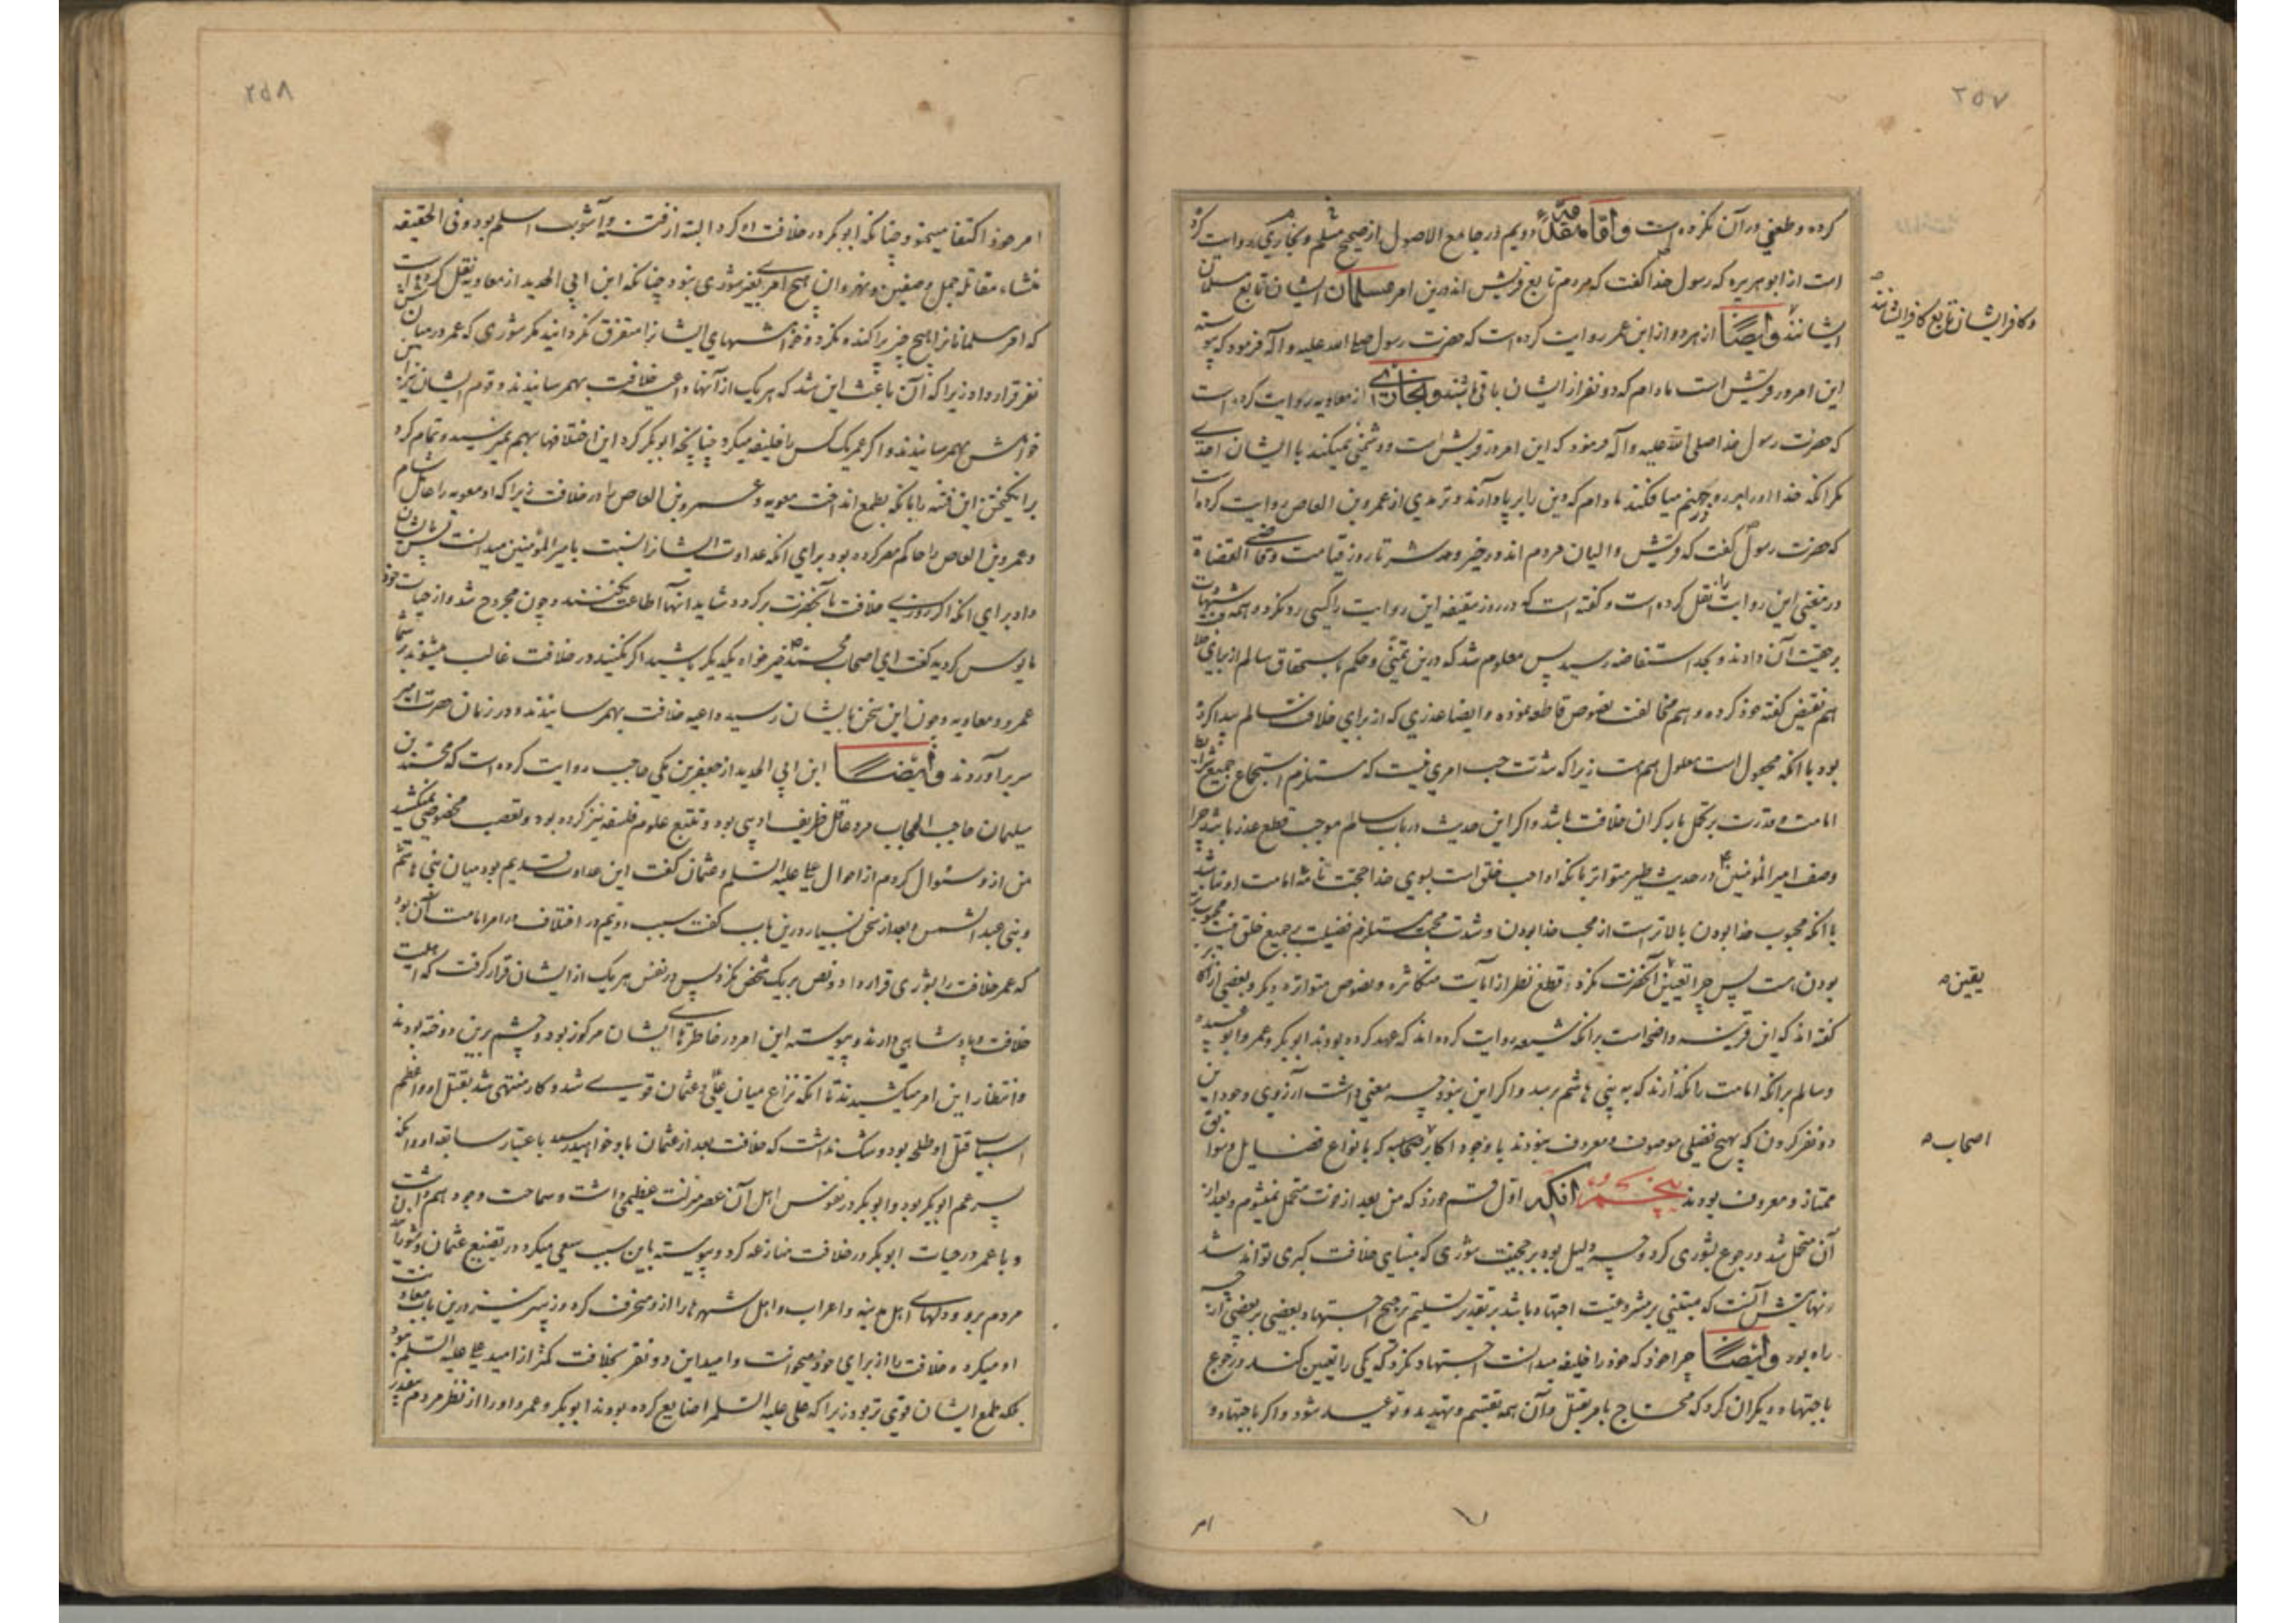 ۲۵۷
کرده و طعنی در آن نکرده است و اما مقدمه دویم در جامع الاصول از صحیح مسلم و بخاری روایت کرده
است از ابو هریره که رسول خدا گفت که مردم تابع قریش اند درین امر مسلمان ایشان تابع مسلمان
ایشانند و ایضا از هر دو از ابن عمر روایت کرده است که حضرت رسول صلی الله علیه و آله فرمود که پیوسته
و کافر ایشان تابع کافر ایشانند
این امر در قریش است مادام که دو نفر از ایشان باقی باشند و بخاری از معاویه روایت کرده است
که حضرت رسول خدا صلی الله علیه و آله فرمود که این امر در قریش است و دشمنی نمیکند با ایشان احدی
مگر انکه خدا او را بر رو در جهنم میافکند مادام که دین را بر پا دارند و ترمذی از عمرو بن العاص روایت کرده است
که حضرت رسول گفت که قریش والیان مردم اند در خیر و شر تا روز قیامت و قاضی القضاة
در مغنی این روایت را نقل کرده است و گفته است که در روز سقیفه این روایت را کسی رد نکرد و همه شهادت
بر حقیت آن دادند و بحد استفاضه رسید پس معلوم شد که درین تمنی و حکم باستحقاق سالم از برای خلافت
هم نقیض گفته خود کرده و هم مخالفت نصوص قاطعه نموده و ایضا عذری که از برای خلافت سالم پیدا کرده
بود با انکه مجعول است معلول هم هست زیرا که شدت حب امری نیست که مستلزم استجماع جمیع شرایط
امامت و قدرت بر تحمل بار گران خلافت باشد و اگر این حدیث در باب سالم موجب قطع عذر باشد چرا
وصف امیر المؤمنین در حدیث طیر متواتر بانکه او احب خلق است بسوی خدا حجت تامه امامت او نباشد
با انکه محبوب خدا بودن بالاتر است از محب خدا بودن و شدت محبت مستلزم فضیلت بر جمیع خلق نیست
بودن هست پس چرا تعیین آنحضرت نکرد و قطع نظر از آیات متکاثره و نصوص متواتره دیگر و بعضی از
یقین
گفته اند که این قرینه واضحه است برانکه شیعه روایت کرده اند که عهد کرده بودند ابو بکر و عمر و ابو عبیده
و سالم برانکه امامت را نگذارند که به بنی هاشم برسد و اگر این نبود چه معنی داشت آرزوی وجود این
دو نفر کردن که بهیچ فضلی موصوف و معروف نبودند با وجود اکابر صحابه که بانواع فضایل و سوابق
اصحاب
ممتاز و معروف بودند پنجم انکه اول قسم خورد که من بعد از موت متحمل نمیشوم و بعد از
آن متحمل شد و رجوع بشوری کرد و چه دلیل بود بر حجیت شوری که مبنای خلافت کبری تواند شد
و نهایتش آنست که مبتنی بر مشروعیت اجتهاد باشد بر تقدیر تسلیم ترجیح اجتهاد بعضی بر بعضی از چه
راه بود و ایضا چرا خود که خود را خلیفه میدانست اجتهاد نکرد که یکی را تعیین کند و رجوع
باجتهاد دیگران کرد که محتاج بامر بقتل و آن همه تقسیم و تهدید و توعید شود و اگر باجتهاد
امر
۲۵۸
امر خود اکتفا مینمود چنانکه ابو بکر در خلافت او کرد البته از فتنه و آشوب اسلم بود و فی الحقیقه
منشاء مقاتله جمل و صفین و نهروان هیچ امری بغیر شوری نبود چنانکه ابن ابی الحدید از معاویه نقل کرده است
که امر مسلمانانرا هیچ چیز پراکنده نکرد و خواهشهای ایشانرا متفرق نگردانید مگر شوری که عمر در میان شش
نفر قرار داد زیرا که آن باعث این شد که هر یک از آنها داعیه خلافت بهم رسانیدند و قوم ایشان نیز این
خواهش بهم رسانیدند و اگر عمر یک کس را خلیفه میکرد چنانچه ابو بکر کرد این اختلافها بهم نمیرسید و تمام کرد
بر انگیختن این فتنه را بانکه بطمع انداخت معویه و عمرو بن العاص را در خلافت زیرا که او معویه را عامل شام
و عمرو بن العاص را حاکم مصر کرده بود برای انکه عداوت ایشانرا نسبت بامیر المؤمنین میدانست
داد برای انکه اگر روزی خلافت بآنحضرت برگردد شاید آنها اطاعت نکنند و چون مجروح شد و از حیات خود
مایوس گردید گفت ای اصحاب محمد خیر خواه یکدیگر باشید اگر نکنید در خلافت غالب میشوند بر شما
عمرو و معاویه و چون این سخن بایشان رسید داعیه خلافت بهمرسانیدند و در زمان حضرت امیر
سر بر آوردند و ایضا ابن ابی الحدید از جعفر بن مکی حاجب روایت کرده است که محمد بن
سلیمان حاجب الحجاب مرد عاقل ظریف ادیبی بود و تتبع علوم فلسفه نیز کرده بود و تعصب مخصوصی نمیکشید
من از و سئوال کردم از احوال علی علیه السلم و عثمان گفت این عداوت قدیم بود میان بنی هاشم
و بنی عبد الشمس و بعد از سخن بسیار درین باب گفت سبب دویم در اختلاف در امر امامت آن بود
که عمر خلافت را بشوری قرار داد و نص بر یک شخص نکرد پس در نفس هر یک از ایشان قرار گرفت که اهلیت
خلافت و پادشاهی دارند و پیوسته این امر در خاطرهای ایشان مرکوز بود و چشم برین دوخته بودند
و انتظار این امر میکشیدند تا انکه نزاع میان علی و عثمان قوی شد و کار منتهی شد بقتل او و اعظم
اسباب قتل او طلحه بود و شک نداشت که خلافت بعد از عثمان باو خواهد رسید باعتبار سابقه او و انکه
پسر عم ابو بکر بود و ابو بکر در نفوس اهل آن عصر منزلت عظیمی داشت و سماحت و جود هم داشت
و با عمر در حیات ابو بکر در خلافت منازعه کرد و پیوسته باین سبب سعی میکرد در تضییع عثمان
مردم برو و دلهای اهل مدینه و اعراب و اهل شهرها را از و منحرف کرد و زبیر نیز درین باب معاونت
او میکرد و خلافت را از برای خود میخواست و امید این دو نفر بخلافت کمتر از امید علی علیه السلم نبود
بلکه طمع ایشان قوی تر بود زیرا که علی علیه السلم را ضایع کرده بودند ابو بکر و عمر و او را از نظر مردم